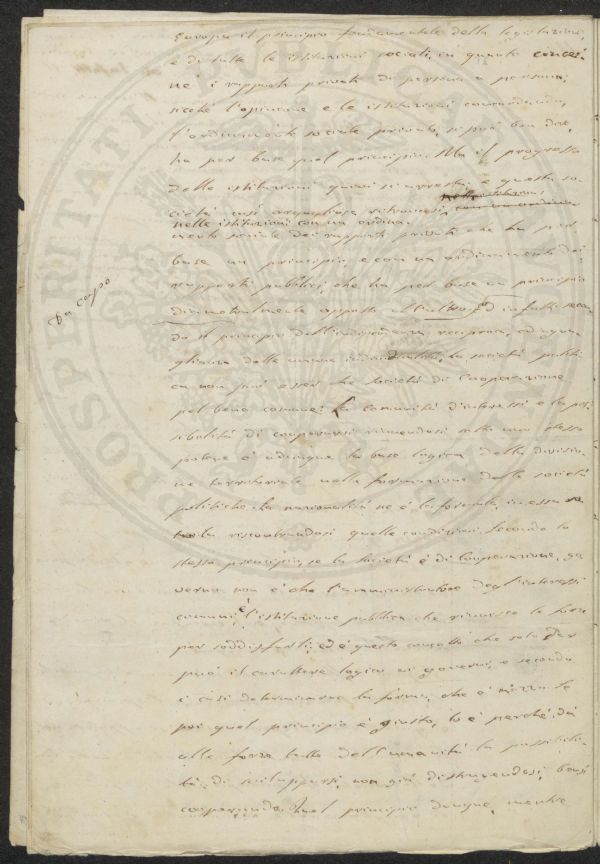 Europa il principio fondamentale della legislazione,
e di tutte le istituzioni sociali, in quanto concer-
ne i rapporti privati di persona a persona;
sicché l'opinione e le istituzioni concordando,
l'ordinamento sociale privato, si può ben dire,
ha per base quel principio. Ma il progresso
delle istituzioni quivi si arresta, e questa so-
cietà così orgogliosa
nelle istituzioni con un ordina-
mento sociale dei rapporti privati che ha per
base un principio, e con un ordinamento dei
rapporti pubblici, che ha per base un principio
Da capo
diametralmente opposto all'altro. Ed infatti secon-
do il principio dell'indipendenza reciproca, ed ugua-
glianza delle umane individualità, la società pubbli-
ca non può esser che società di Cooperazione
pel bene comune. La comunità d'interessi e la pos-
sibilità di cooperarvi riunendosi sotto uno stesso
potere è adunque la base logica della divisio-
ne territoriale nella formazione delle società
politiche. La nazionalità ne è la formola, in essa
riscontrandosi quelle condizioni. Secondo lo
stesso principio, se la società è di Cooperazione, go-
verno non è che l'amministratore degl'interessi
comuni, è l'istituzione pubblica che riunisce le forze
per soddisfarli; ed è questo concetto che solo dar
può il carattere logico ai governi, e secondo
i casi determinarne la forma, che è
poi quel principio è giusto, lo è perché dà
alle forze tutte dell'umanità la possibili-
tà di svilupparsi, non già distruggendosi, bensì
cooperando. Quel principio dunque, mentre